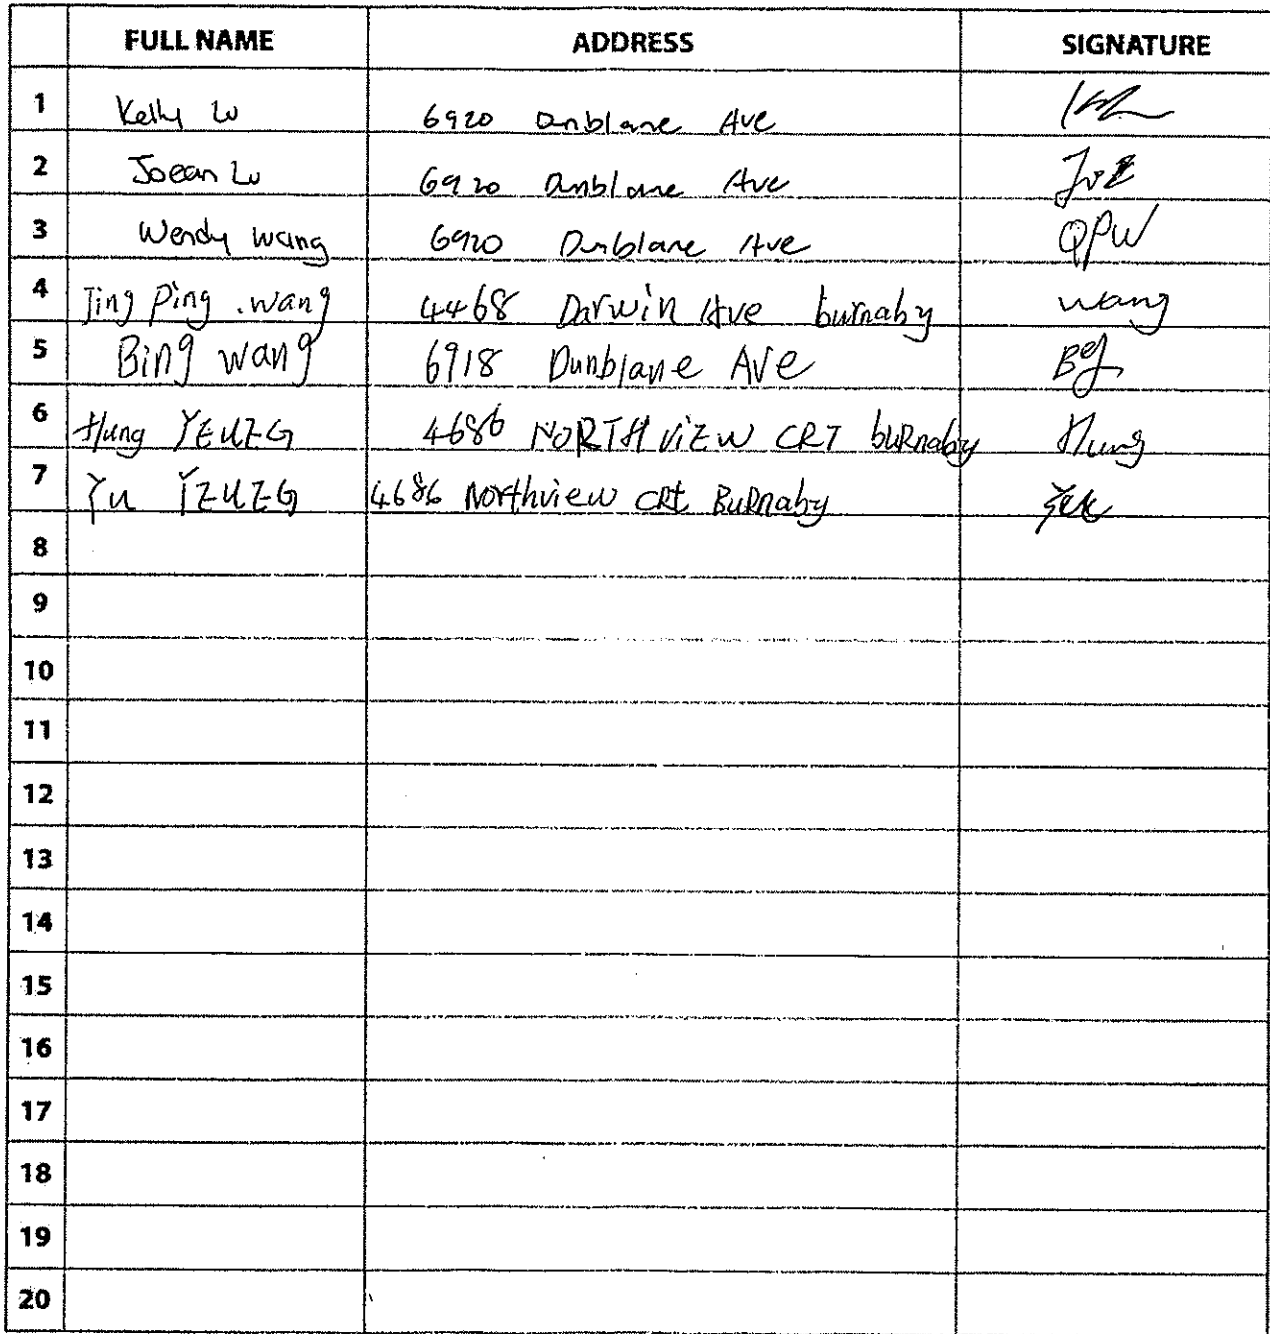 FULL NAME ADDRESS SIGNATURE
1 Kelly Lu 6920 Dunblane Ave
2 Joean Lu 6920 Dunblane Ave Joe
3 Wendy wang 6920 Dunblane Ave QPW
4 Jing Ping .wang 4468 Darwin Ave burnaby wang
5 Bing wang 6918 Dunblane Ave
6 Hung YEUNG 4686 NORTH VIEW CRT buRnaby Hung
7 Yu YEUNG 4686 Northview CRt BuRnaby
8
9
10
11
12
13
14
15
16
17
18
19
20